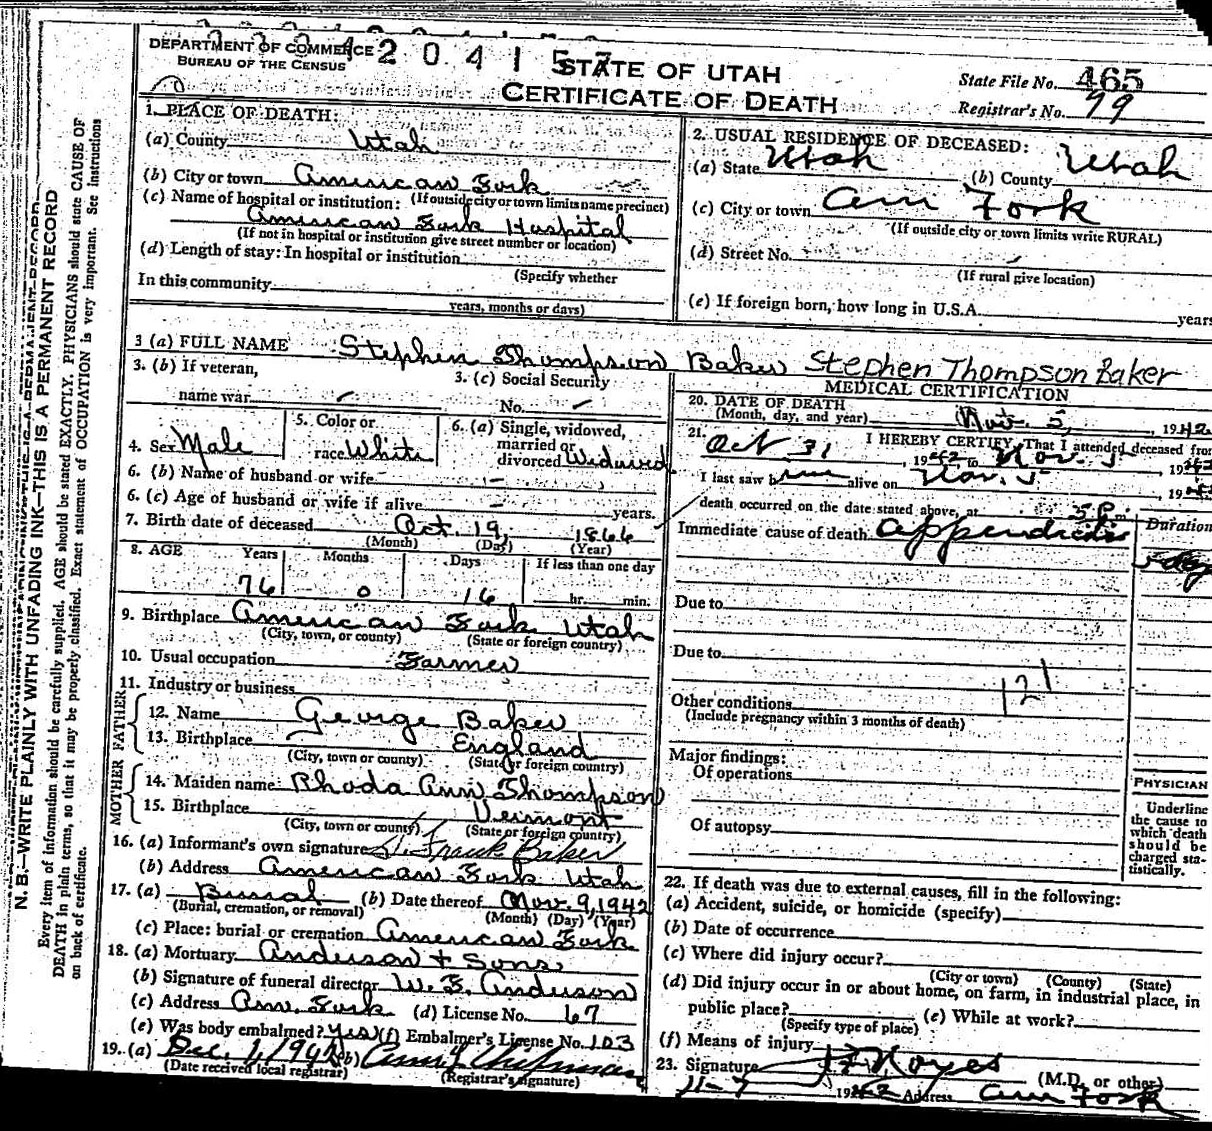 DEPARTMENT OF COMMERCE
BUREAU OF THE CENSUS
204157
STATE OF UTAH
CERTIFICATE OF DEATH
State File No. 465
Registrar's No. 99
1. PLACE OF DEATH:
(a) County Utah
(b) City or town American Fork
(c) Name of hospital or institution: (If outside city or town limits name precinct)
American Fork Hospital
(If not in hospital or institution give street number or location)
(d) Length of stay: In hospital or institution
(Specify whether
In this community
years, months or days)
2. USUAL RESIDENCE OF DECEASED:
(a) State Utah (b) County Utah
(c) City or town Am Fork
(If outside city or town limits write RURAL)
(d) Street No.
(If rural give location)
(e) If foreign born, how long in U.S.A. years
3 (a) FULL NAME Stephen Thompson Baker Stephen Thompson Baker
3. (b) If veteran,
name war
3. (c) Social Security
No.
4. Sex Male
5. Color or
race White
6. (a) Single, widowed,
married or
divorced Widowed
6. (b) Name of husband or wife
6. (c) Age of husband or wife if alive years.
7. Birth date of deceased Oct. 19, 1866
(Month) (Day) (Year)
8. AGE Years Months Days If less than one day
76 0 16 hr. min.
9. Birthplace American Fork Utah
(City, town, or county) (State or foreign country)
10. Usual occupation Farmer
11. Industry or business
FATHER
12. Name George Baker
13. Birthplace England
(City, town or county) (State or foreign country)
MOTHER
14. Maiden name Rhoda Ann Thompson
15. Birthplace Vermont
(City, town or county) (State or foreign country)
16. (a) Informant's own signature Frank Baker
(b) Address American Fork Utah
17. (a) Burial (b) Date thereof Nov. 9, 1942
(Burial, cremation, or removal) (Month) (Day) (Year)
(c) Place: burial or cremation American Fork
18. (a) Mortuary Anderson & Sons
(b) Signature of funeral director W. E. Anderson
(c) Address Am. Fork (d) License No. 67
(e) Was body embalmed? Yes (f) Embalmer's License No. 103
19. (a) Dec. 1, 1942 (b) Chipman
(Date received local registrar) (Registrar's signature)
MEDICAL CERTIFICATION
20. DATE OF DEATH
(Month, day, and year) Nov. 5, 1942
21. I HEREBY CERTIFY, That I attended deceased from
Oct 31, 1942 to Nov. 5 1942
I last saw him alive on Nov. 5 1942
death occurred on the date stated above, at 5 P. m.
Immediate cause of death appendicitis
Duration
5 day
Due to
Due to
121
Other conditions
(Include pregnancy within 3 months of death)
Major findings:
Of operations
Of autopsy
PHYSICIAN
Underline
the cause to
which death
should be
charged sta-
tistically.
22. If death was due to external causes, fill in the following:
(a) Accident, suicide, or homicide (specify)
(b) Date of occurrence
(c) Where did injury occur?
(City or town) (County) (State)
(d) Did injury occur in or about home, on farm, in industrial place, in
public place? (e) While at work?
(Specify type of place)
(f) Means of injury
23. Signature Noyes
(M.D. or other)
11-7 1942 Address Am Fork
N. B.—WRITE PLAINLY WITH UNFADING INK—THIS IS A PERMANENT RECORD
Every item of information should be carefully supplied. AGE should be stated EXACTLY. PHYSICIANS should state CAUSE OF
DEATH in plain terms, so that it may be properly classified. Exact statement of OCCUPATION is very important. See instructions
on back of certificate.